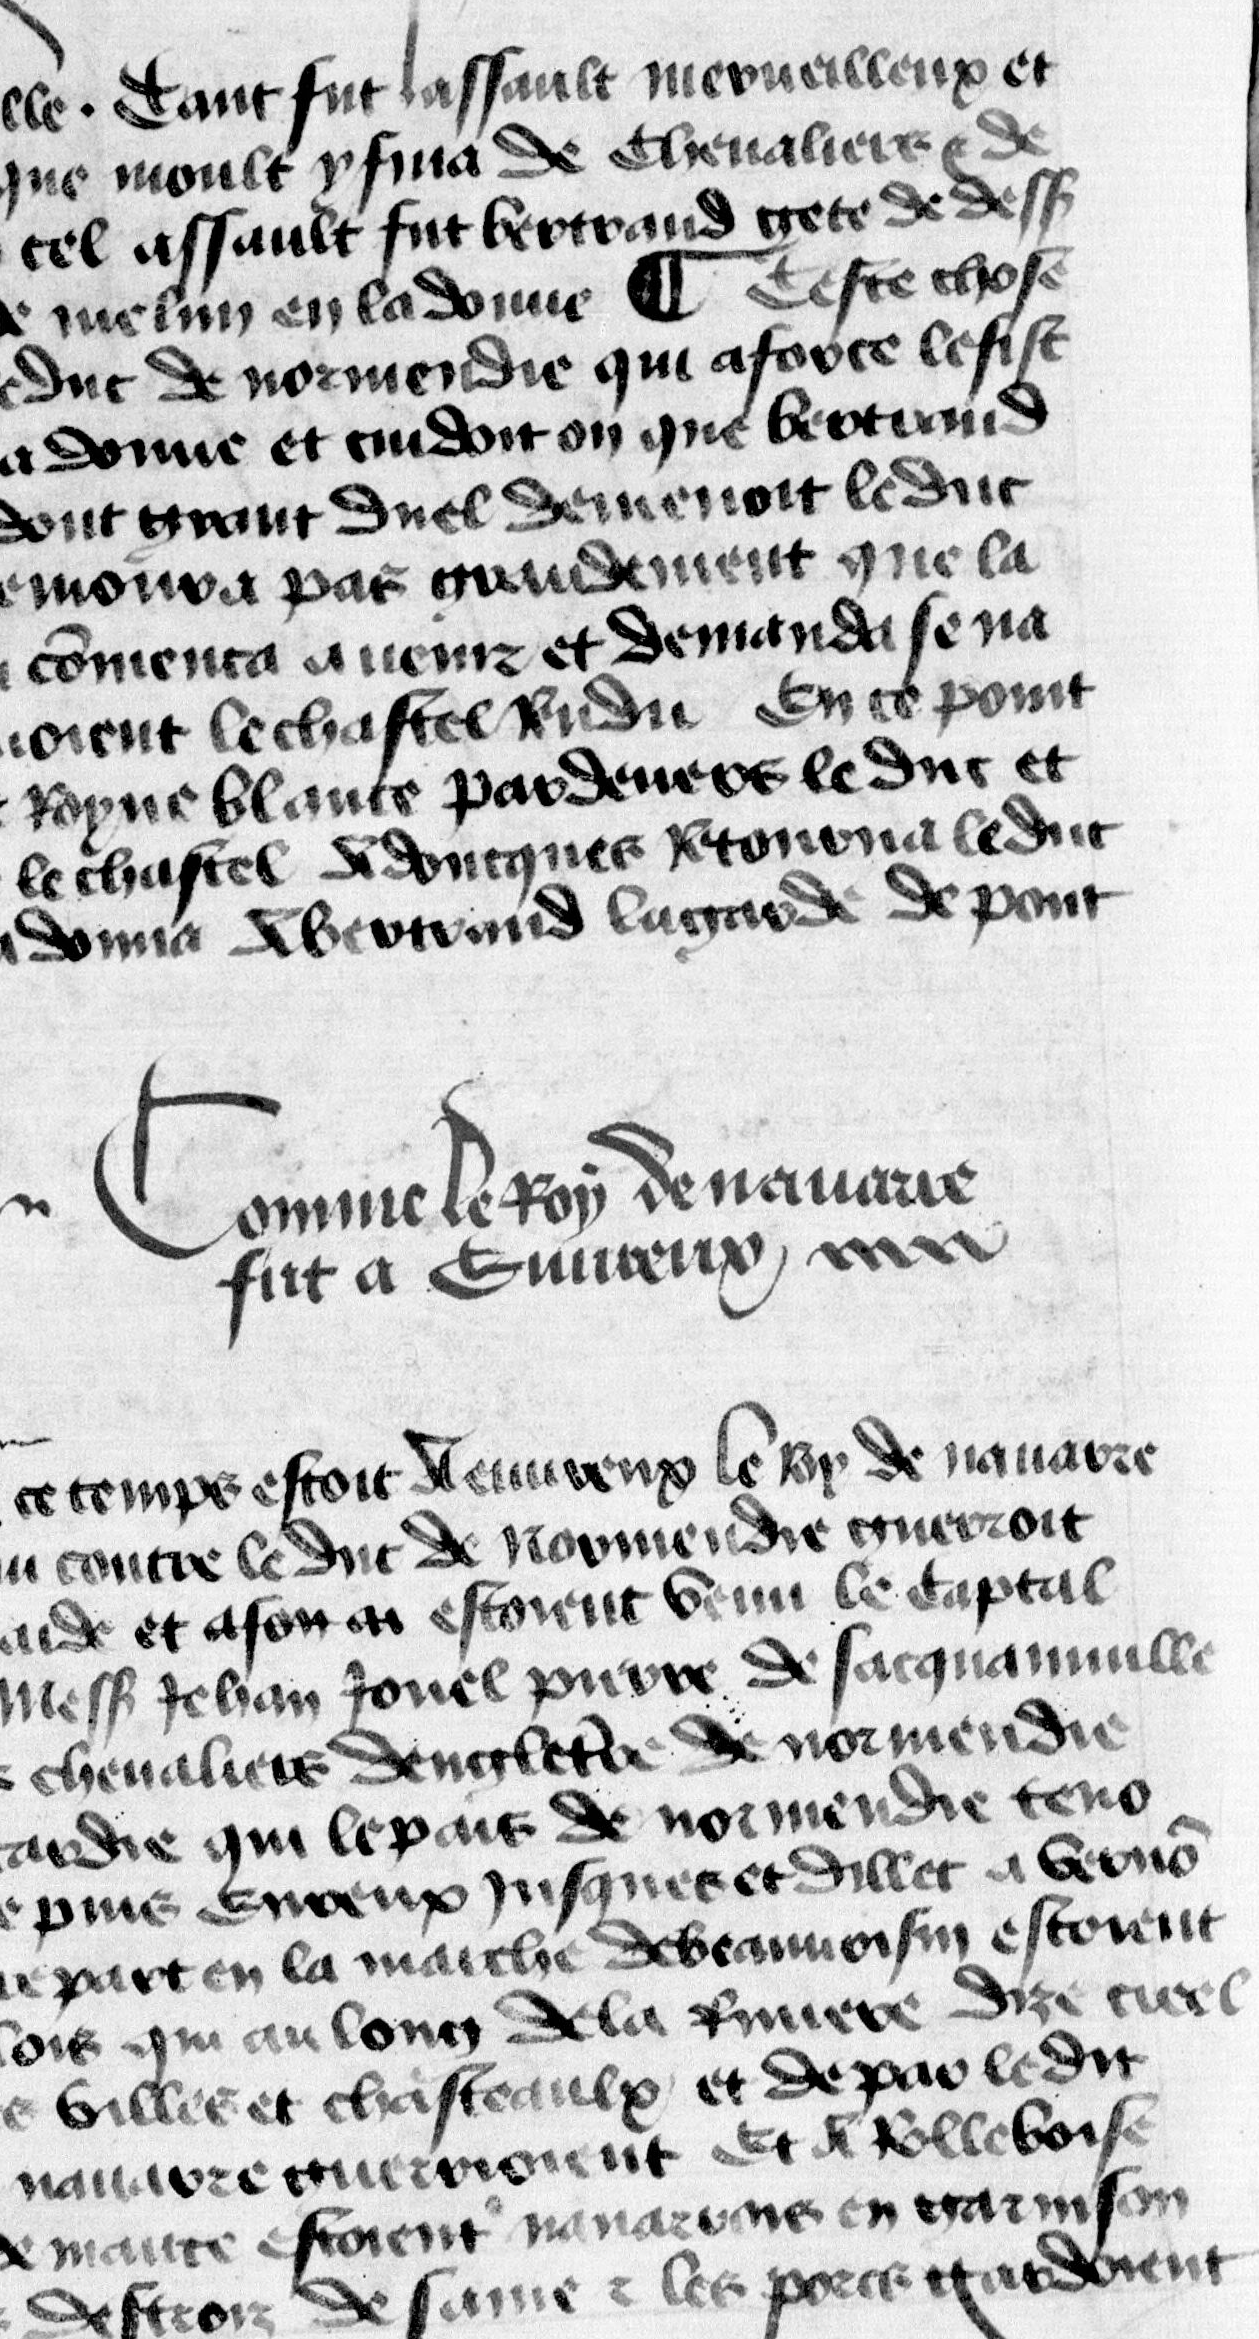 lle . Tant fut lassault merueilleux et
que moult y fina de Cheualiers & de
cel assault fut bertrand gete de dess
melun en la donue ¶ Ceste chose
educ de normendie qui a force le fist
a donue et cuidoit on que bertrand
dont grant duel demenoit le duc
emoura pas grandement que la
cōmenca a uenir et demanda se na
uoient le chastel Rndu En ce point
Royne blance par deuers le duc et
le chastel Adoncques Rtourna le duc
donna A bertrand la garde de pont
Comme le Roy de nauarre
fut a Euureux
ce temps estoit A euureux le Roy de nauarre
contre le duc de Normendie guerroit
aide et a son estoient Venu le Captal
Mess Jehan Jouel pierre de sacquainuille
cheualiers dengleterre de normendie
cardie qui le pais de normendie teno
puis Eureux Jusques et dillec a Vernō
part en la marche de beauuoisin estoient
lois qui au long de la Riuiere dize
Villes et chasteaulx et de par le dit
nauarre guerrioient Et A Rolleboise
mante estoient nauarrois en garnison
destroiz de saine & les pors gardoient